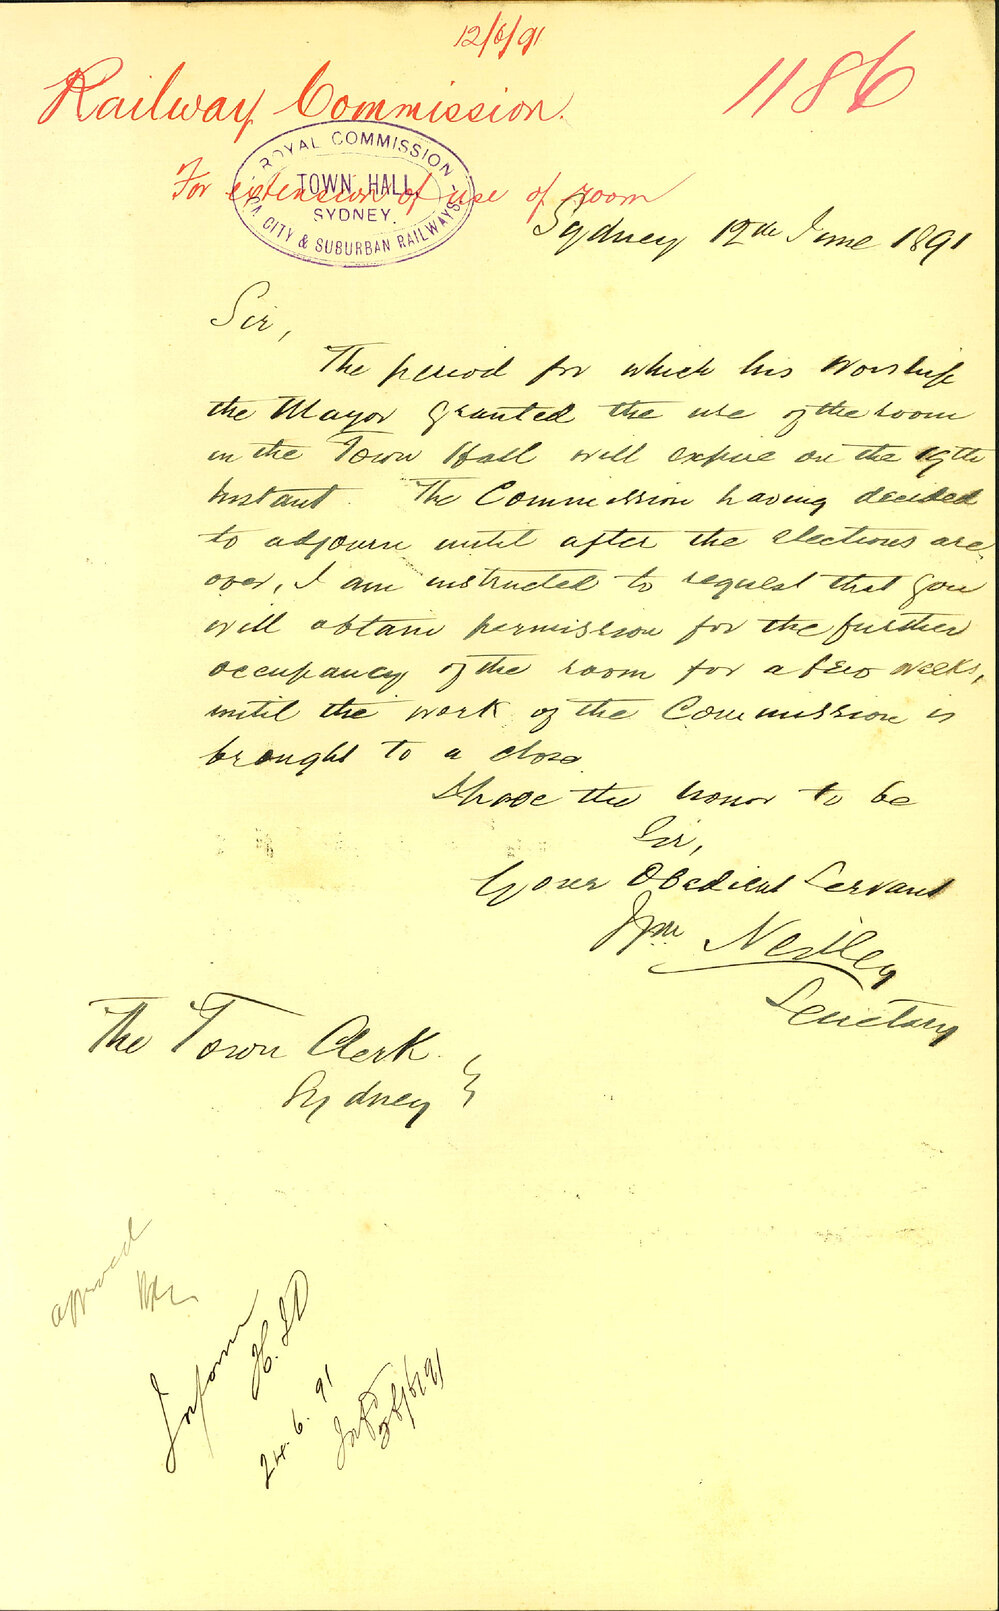 12/6/91
1186
Railway Commission.
For extension of use of room
ROYAL COMMISSION
TOWN HALL
SYDNEY.
CITY & SUBURBAN RAILWAYS
Sydney 12th June 1891
Sir,
The period for which his Worship
the Mayor granted the use of the room
in the Town Hall will expire on the 19th
Instant. The Commission having decided
to adjourn until after the elections are
over, I am instructed to request that you
will obtain permission for the further
occupancy of the room for a few weeks,
until the work of the Commission is
brought to a close
I have the honor to be
Sir,
Your Obedient Servant
Wm Neilley
Secretary
The Town Clerk
Sydney
approved
Inform
24.6.91